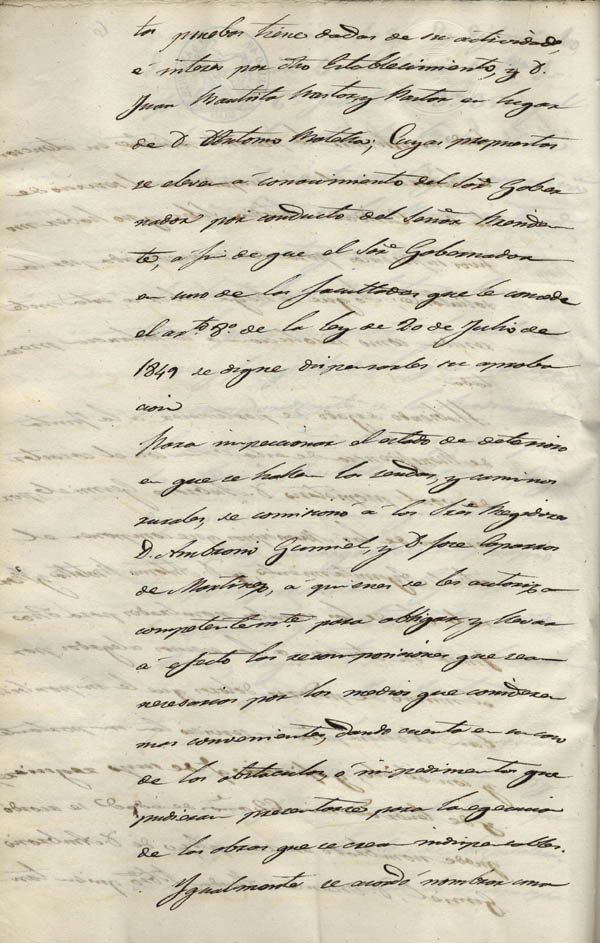 tas pruebas tiene dadas de su actividad,
é interes por dho Establecimiento, y D.
Juan Bautista Pastor y Pastor en lugar
de D. Antonio; Cuyas propuestas
se elevan á conocimiento del Sor. Gober
nador por conducto del Señor Presiden
te, a fin de que el Sor. Gobernador
en uso de las facultades que le concede
el arto. 8o. de la ley de 20 de Julio de
1849 se digne dispensarles su aproba
cion
Para inspeccionar el estado de deterioro
en que se hallen las sendas, y caminos
rurales, se comisionó á los Sres. Regidores
D. Ambrosio Gumiel, y D. Jose Esparros
de Martinez, á quienes se les autoriza
competentemte. para obligar, y llevar
á efecto las recomposiciones que sean
necesarias por los medios que consideren
mas convenientes, dando cuenta en su caso
de los obstaculos, ó impedimentos que
pudieran presentarse para la egecucion
de las obras que se crean indispensables.
Ygualmente se acordó nombrar una